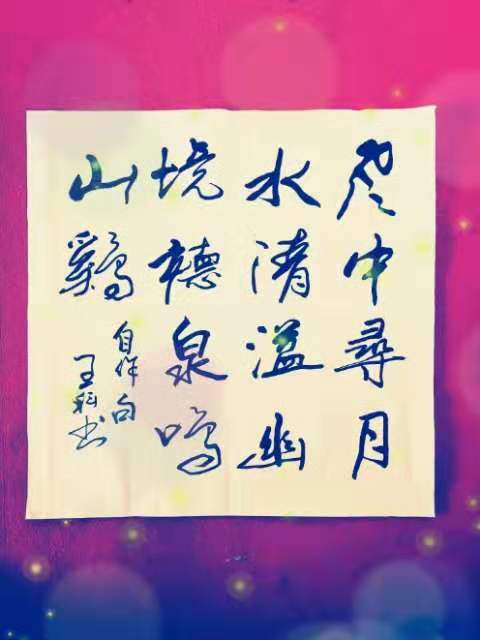 中尋月
水清溢幽
境聽泉鳴
山鷄
自作句
王科书